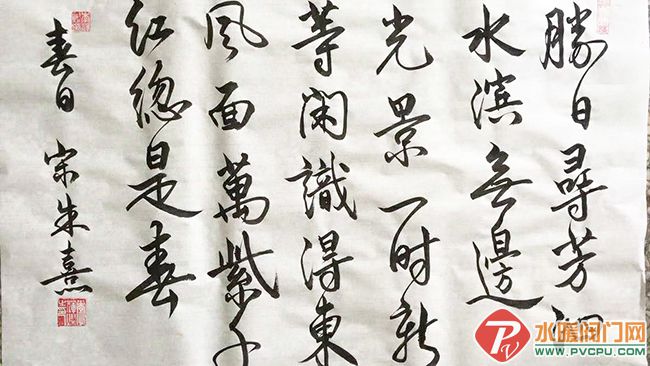 勝日尋芳泗
水滨無邊
光景一时新
等闲識得東
風面萬紫千
红總是春
春日 宋朱熹
水暖阀门网
WWW.PVCPU.COM